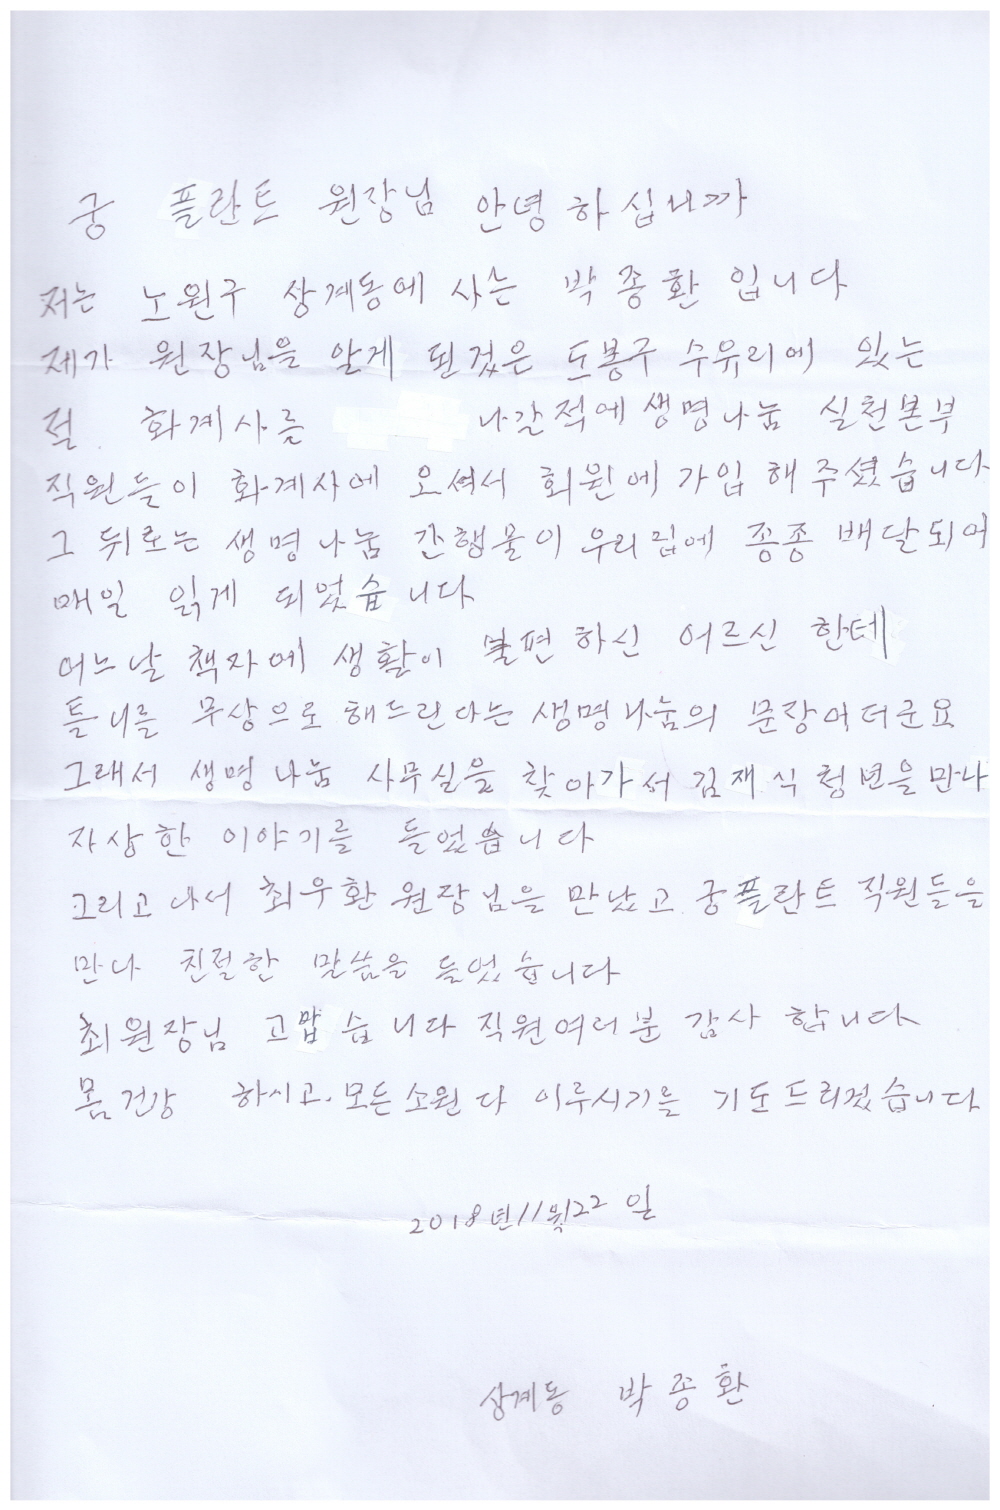 궁 플란트 원장님 안녕 하십니까
저는 노원구 상계동에 사는 박종환 입니다
제가 원장님을 알게 된것은 도봉구 수유리에 있는
절 화계사를 나갈적에 생명나눔 실천본부
직원들이 화계사에 오셔서 회원에 가입 해주셨습니다
그 뒤로는 생명나눔 간행물이 우리집에 종종 배달되어
매일 읽게 되었습니다
어느날 책자에 생활이 불편하신 어르신 한테
틀니를 무상으로 해드린다는 생명나눔의 문장이더군요
그래서 생명나눔 사무실을 찾아가서 김재식 청년을 만나
자상한 이야기를 들었습니다
그리고 나서 최우환 원장님을 만났고 궁플란트 직원들을
만나 친절한 말씀을 들었습니다
최원장님 고맙습니다 직원여러분 감사 합니다
몸건강 하시고. 모든소원 다 이루시기를 기도드리겠습니다
2018년 11월 22일
상계동 박종환